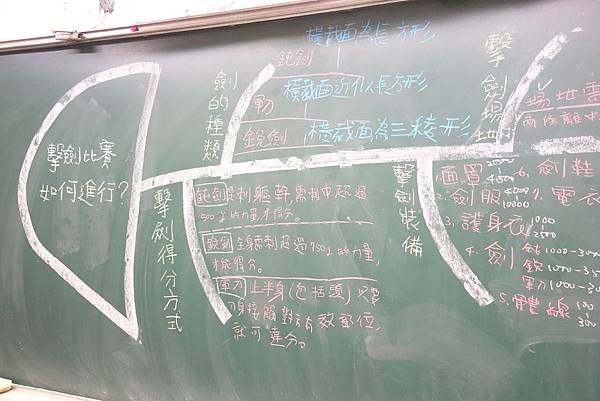 擊劍比賽
如何進行?
劍的種類
鈍劍
橫截面為長方形
軍刀
橫截面近似長方形
銳劍
橫截面為三稜形
擊劍場地
場地需
擊劍得分方式
鈍劍
軀幹,需刺中超過
500g的力量才得分。
銳劍 全身需刺超過750g的力量,
才能得分。
軍刀 上半身(包括頭)只要
刀身接觸對方有效部位,
就可達分。
擊劍裝備
1. 面罩
2. 劍服
3. 護身衣 1000
2500
4. 劍
鈍1000-
銳1000-
軍刀1000-
5. 體線 100
300
6. 劍鞋
7. 電衣